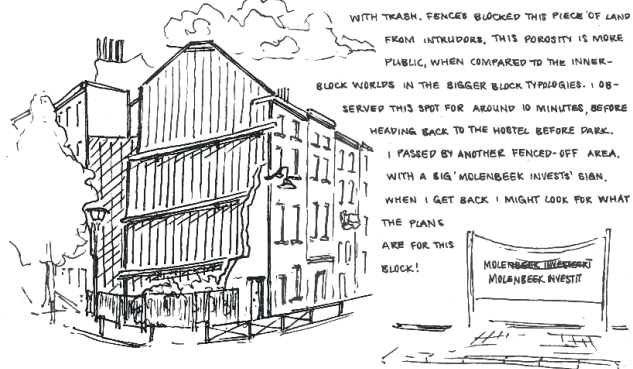 WITH TRASH. FENCES BLOCKED THIS PIECE OF LAND
FROM INTRUDORS. THIS POROSITY IS MORE
PUBLIC, WHEN COMPARED TO THE INNER-
BLOCK WORLDS IN THE BIGGER BLOCK TYPOLOGIES. I OB-
SERVED THIS SPOT FOR AROUND 10 MINUTES, BEFORE
HEADING BACK TO THE HOSTEL BEFORE DARK.
I PASSED BY ANOTHER FENCED-OFF AREA.
WITH A BIG 'MOLENBEEK INVESTS' SIGN.
WHEN I GET BACK I MIGHT LOOK FOR WHAT
THE PLANS
ARE FOR THIS
BLOCK!
MOLENBEEK INVESTEERT
MOLENBEEK INVESTIT